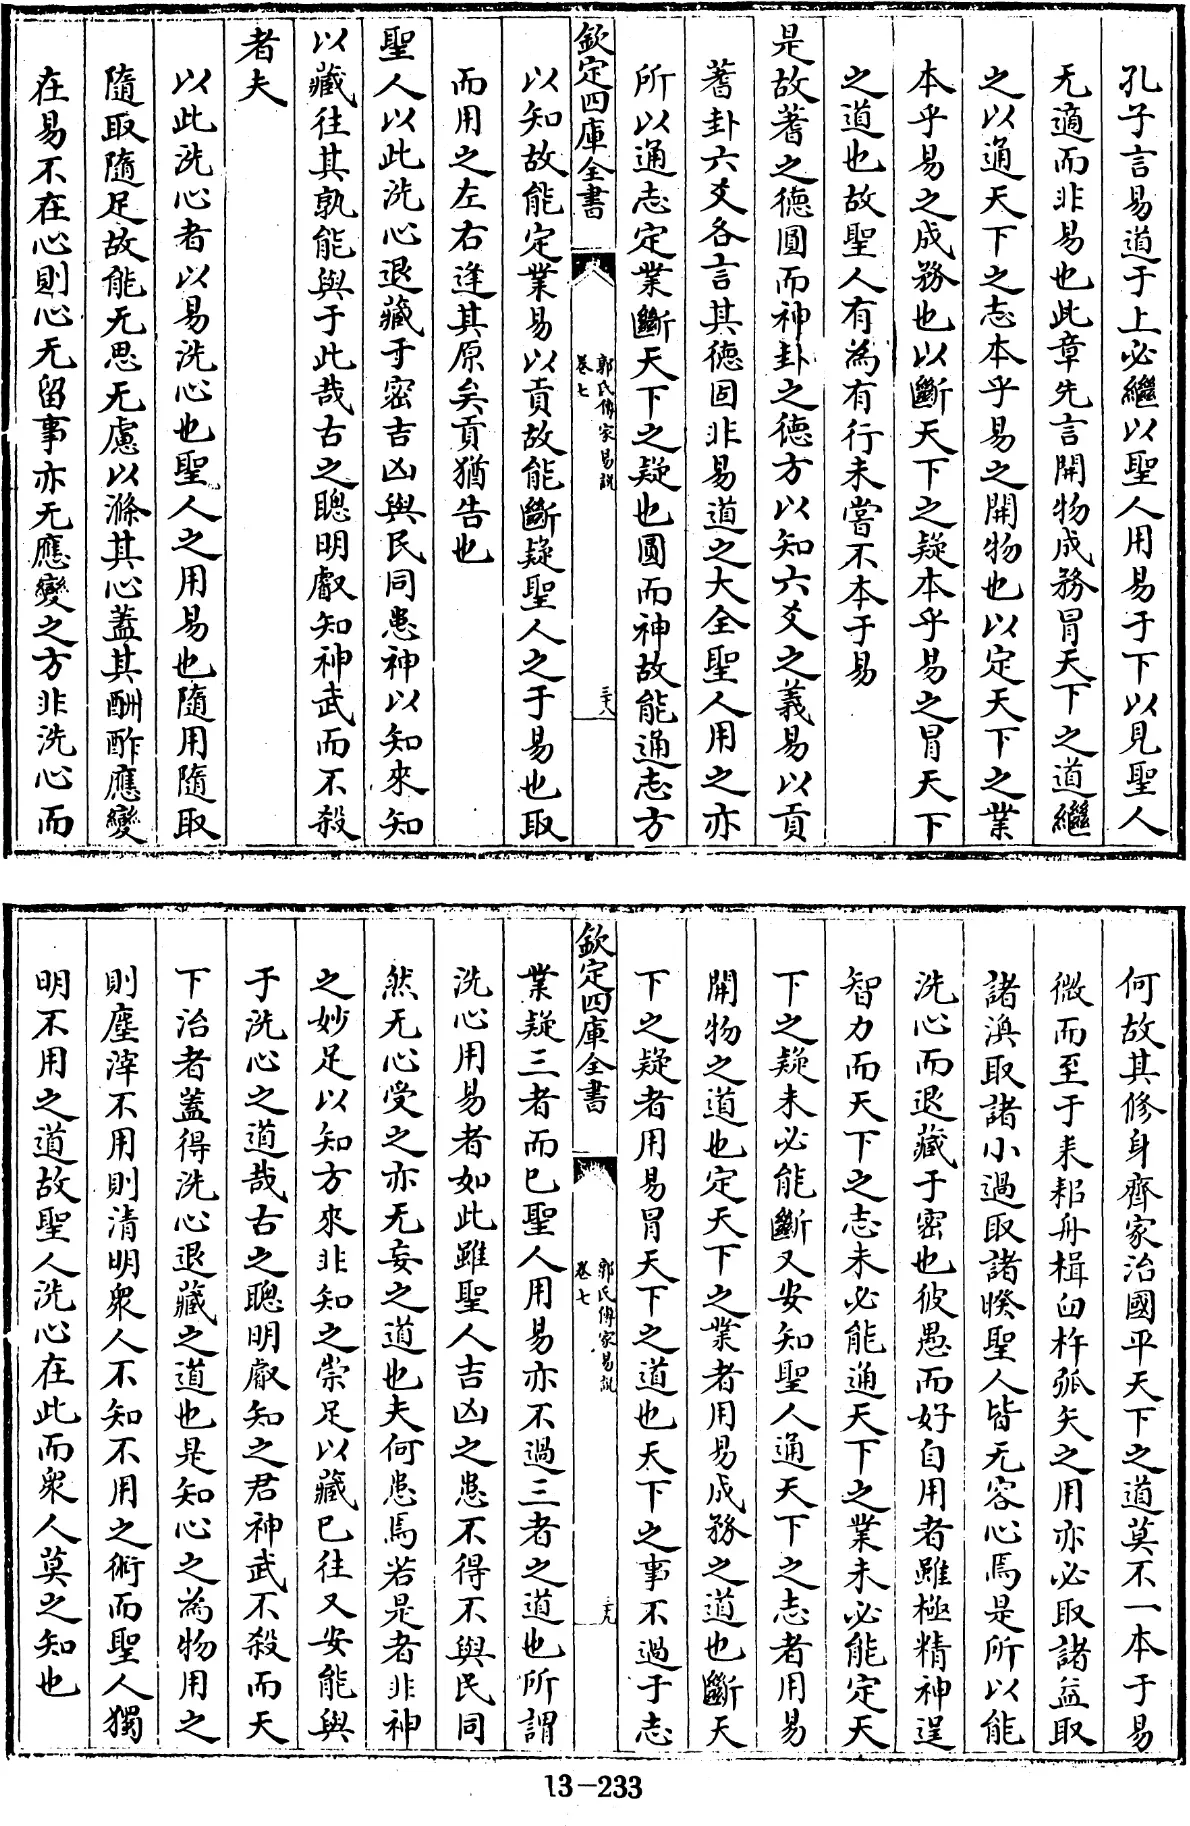 孔子言易道于上必繼以聖人用易于下以見聖人
无適而非易也此章先言開物成務冒天下之道繼
之以通天下之志本乎易之開物也以定天下之業
本乎易之成務也以斷天下之疑本乎易之冒天下
之道也故聖人有為有行未嘗不本于易
是故蓍之德圓而神卦之德方以知六爻之義易以貢
蓍卦六爻各言其德固非易道之大全聖人用之亦
所以通志定業斷天下之疑也圓而神故能通志方
欽定四庫全書
郭氏傳家易說
卷七
三十八
以知故能定業易以貢故能斷疑聖人之于易也取
而用之左右逢其原矣貢猶告也
聖人以此洗心退藏于密吉凶與民同患神以知來知
以藏往其孰能與于此哉古之聰明叡知神武而不殺
者夫
以此洗心者以易洗心也聖人之用易也隨用隨取
隨取隨足故能无思无慮以滌其心蓋其酬酢應變
在易不在心則心无留事亦无應變之方非洗心而
何故其修身齊家治國平天下之道莫不一本于易
微而至于耒耜舟楫臼杵弧矢之用亦必取諸益取
諸渙取諸小過取諸暌聖人皆无容心焉是所以能
洗心而退藏于密也彼愚而好自用者雖極精神逞
智力而天下之志未必能通天下之業未必能定天
下之疑未必能斷又安知聖人通天下之志者用易
開物之道也定天下之業者用易成務之道也斷天
下之疑者用易冒天下之道也天下之事不過于志
欽定四庫全書
郭氏傳家易說
卷七
三十九
業疑三者而已聖人用易亦不過三者之道也所謂
洗心用易者如此雖聖人吉凶之患不得不與民同
然无心受之亦无妄之道也夫何患焉若是者非神
之妙足以知方來非知之崇足以藏已往又安能與
于洗心之道哉古之聰明叡知之君神武不殺而天
下治者蓋得洗心退藏之道也是知心之為物用之
則塵滓不用則清明衆人不知不用之術而聖人獨
明不用之道故聖人洗心在此而衆人莫之知也
13-233